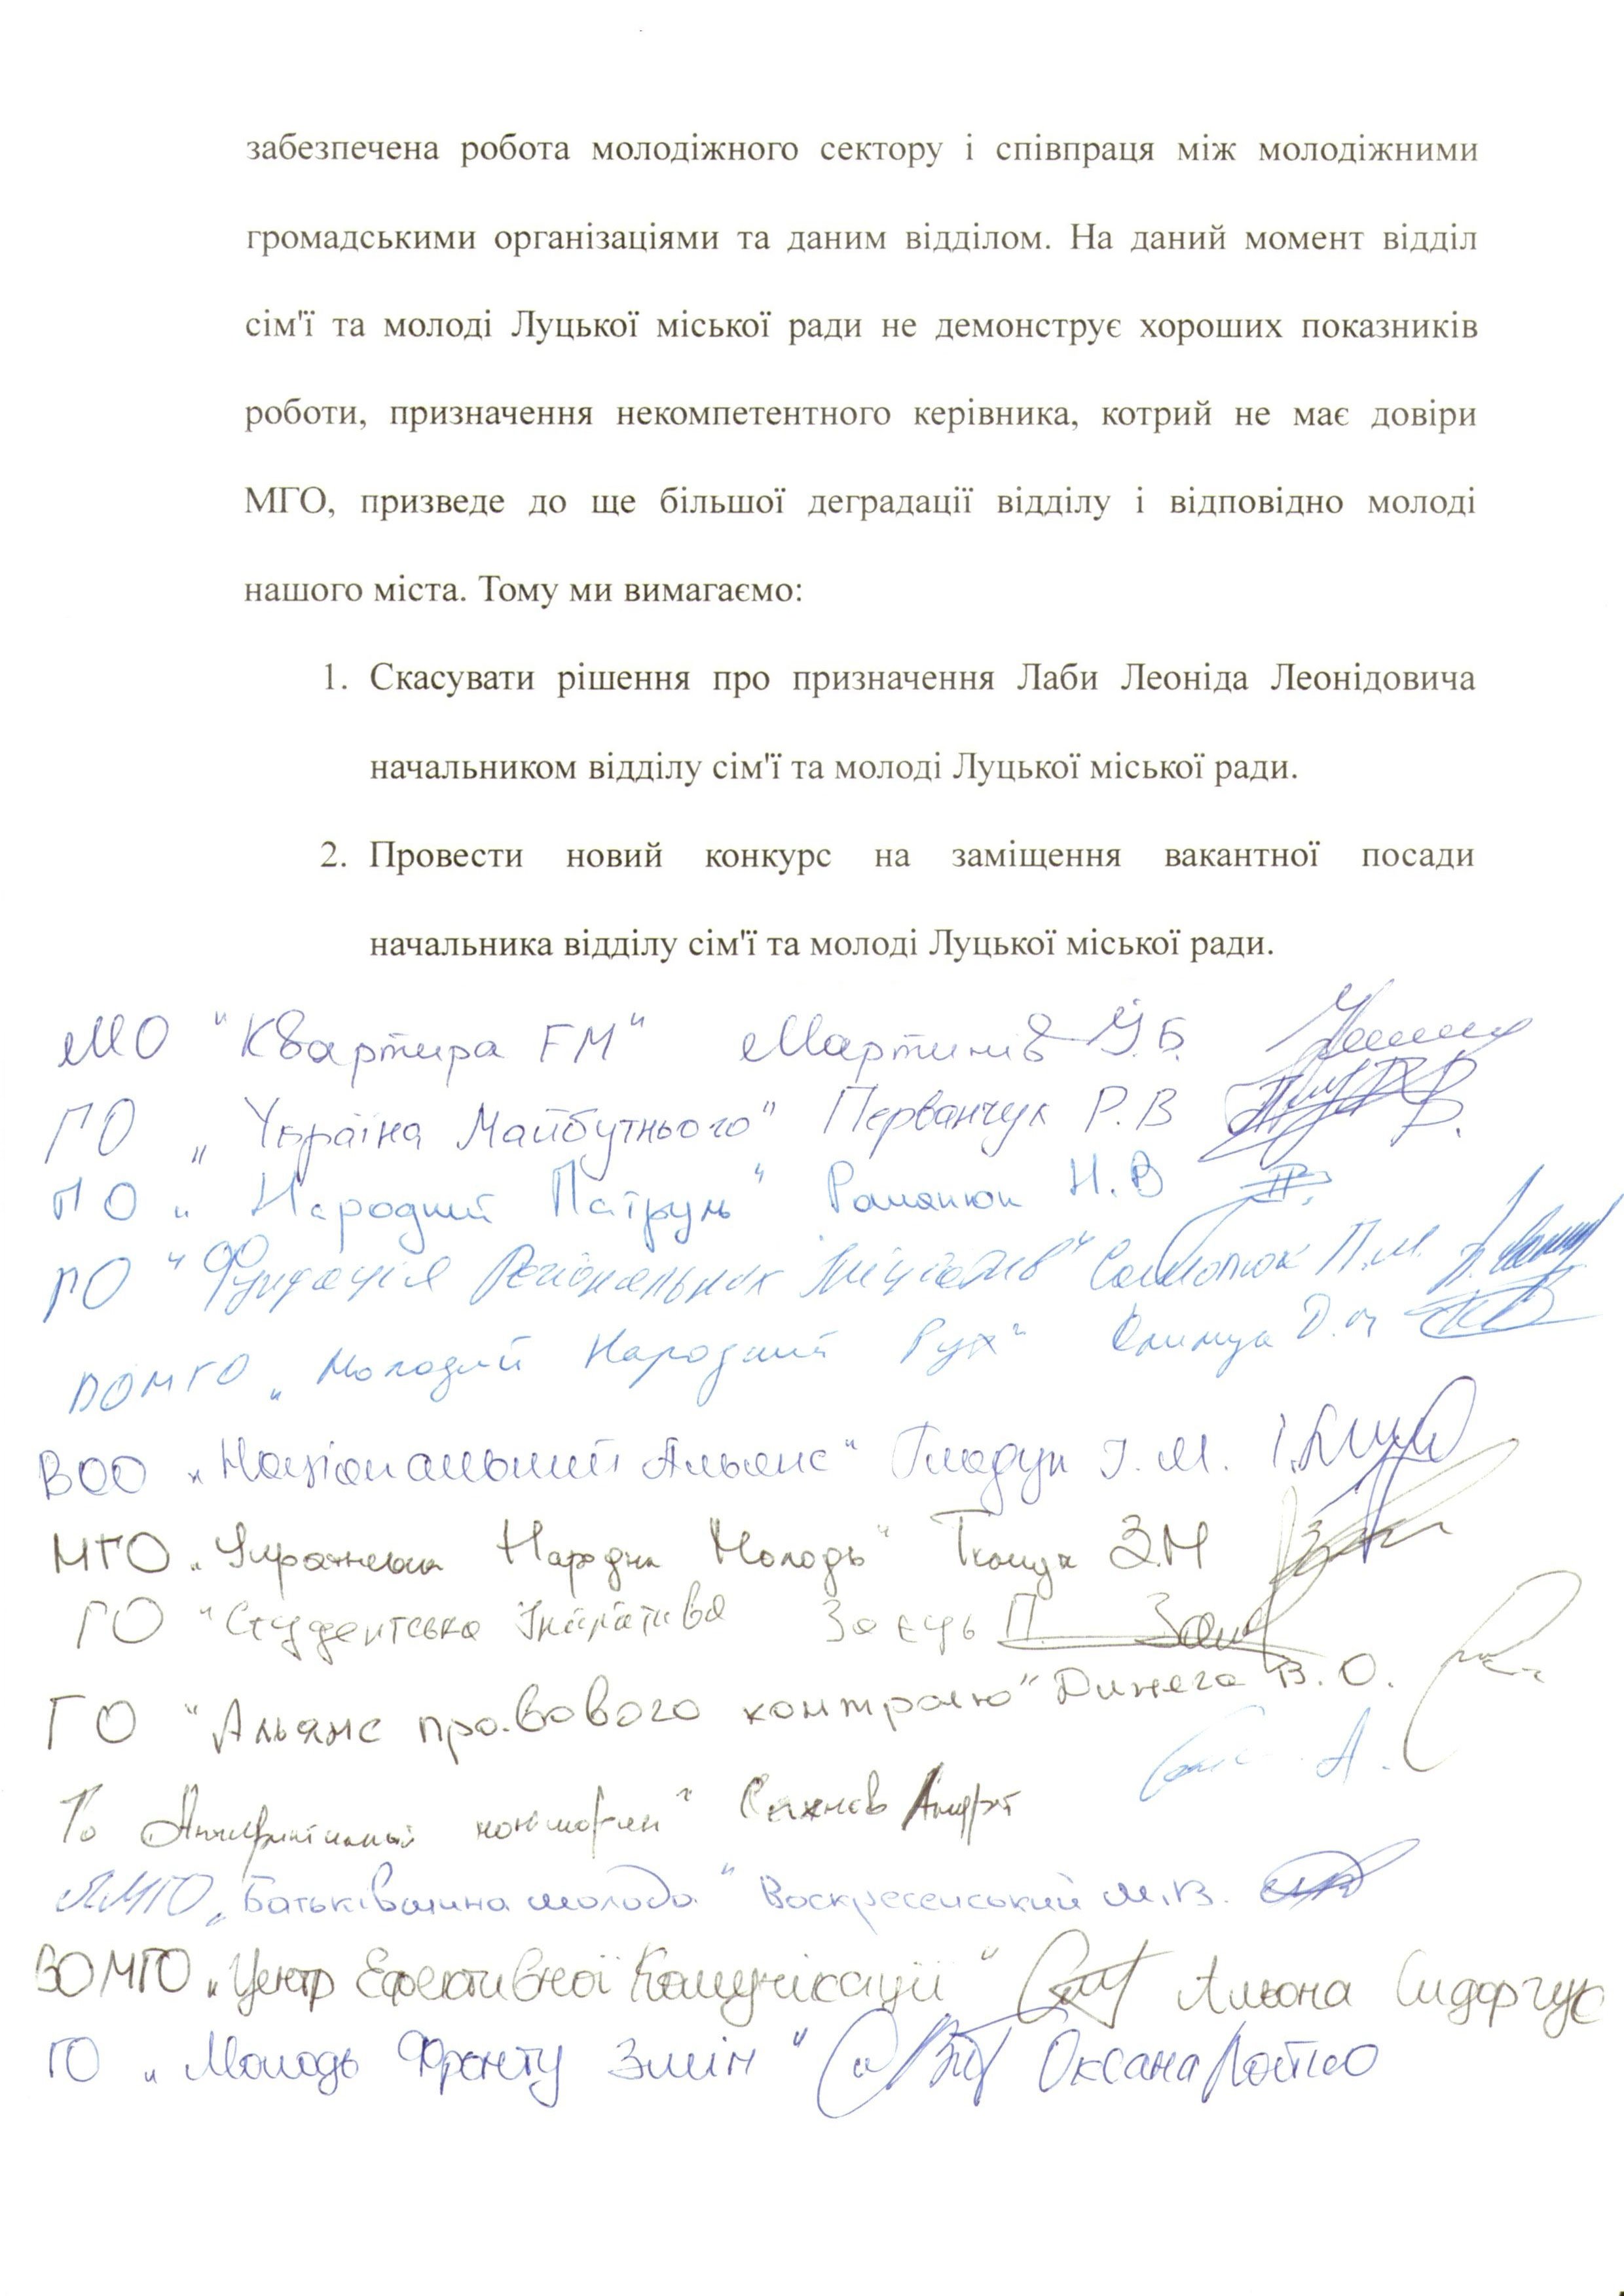 забезпечена робота молодіжного сектору і співпраця між молодіжними
громадськими організаціями та даним відділом. На даний момент відділ
сім'ї та молоді Луцької міської ради не демонструє хороших показників
роботи, призначення некомпетентного керівника, котрий не має довіри
МГО, призведе до ще більшої деградації відділу і відповідно молоді
нашого міста. Тому ми вимагаємо:
1. Скасувати рішення про призначення Лаби Леоніда Леонідовича
начальником відділу сім'ї та молоді Луцької міської ради.
2. Провести новий конкурс на заміщення вакантної посади
начальника відділу сім'ї та молоді Луцької міської ради.
МО "Квартира FM" Мартинів У.Б.
ГО „Україна Майбутнього" Перванчук Р.В
ГО „Народний Патруль" Романюк Н.В
ГО "Фундація Регіональних Ініціатив" П.М.
ВОМГО „Молодий Народний Рух" Д.
ВОО „Національний Альянс" Гладун І.М.
МГО „Українська Народна Молодь" Ткачук З.М
ГО "Студентська Ініціатива Заєць П.
ГО "Альянс правового контролю" Динега В.О.
ГО Андрій
ЛМГО „Батьківщина молода" Воскресенський М.В.
ВОМГО „Центр Ефективної Комунікації" Альона Сидорчук
ГО „Молодь Фронту Змін" Оксана